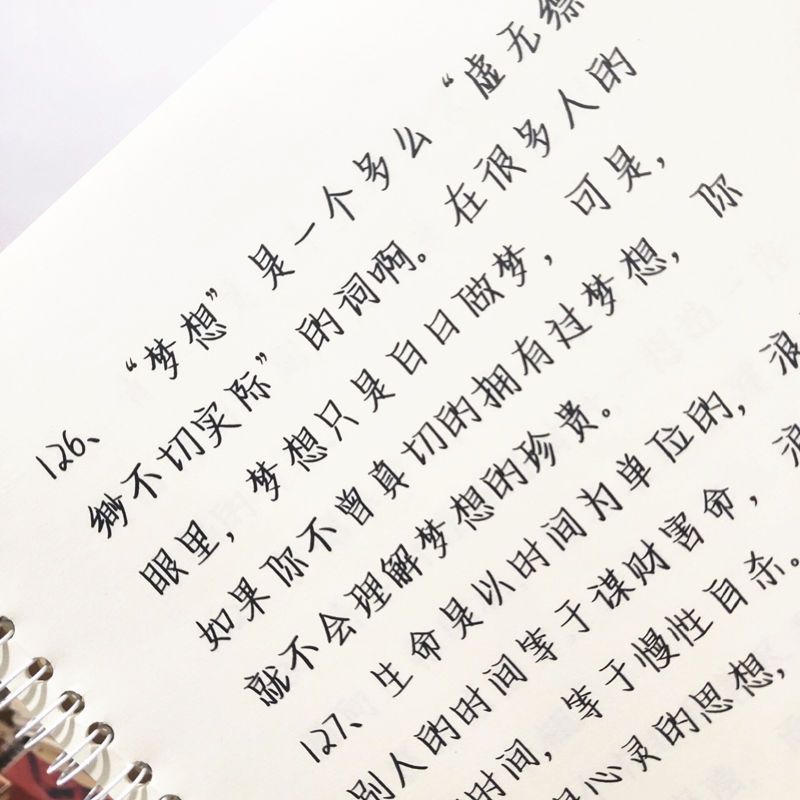 126、“梦想”是一个多么“虚无缥
缈不切实际”的词啊。在很多人的
眼里，梦想只是白日做梦，可是，
如果你不曾真切的拥有过梦想，你
就不会理解梦想的珍贵。
127、生命是以时间为单位的，浪
别人的时间等于谋财害命，浪
时间，等于慢性自杀。
心灵的思想，